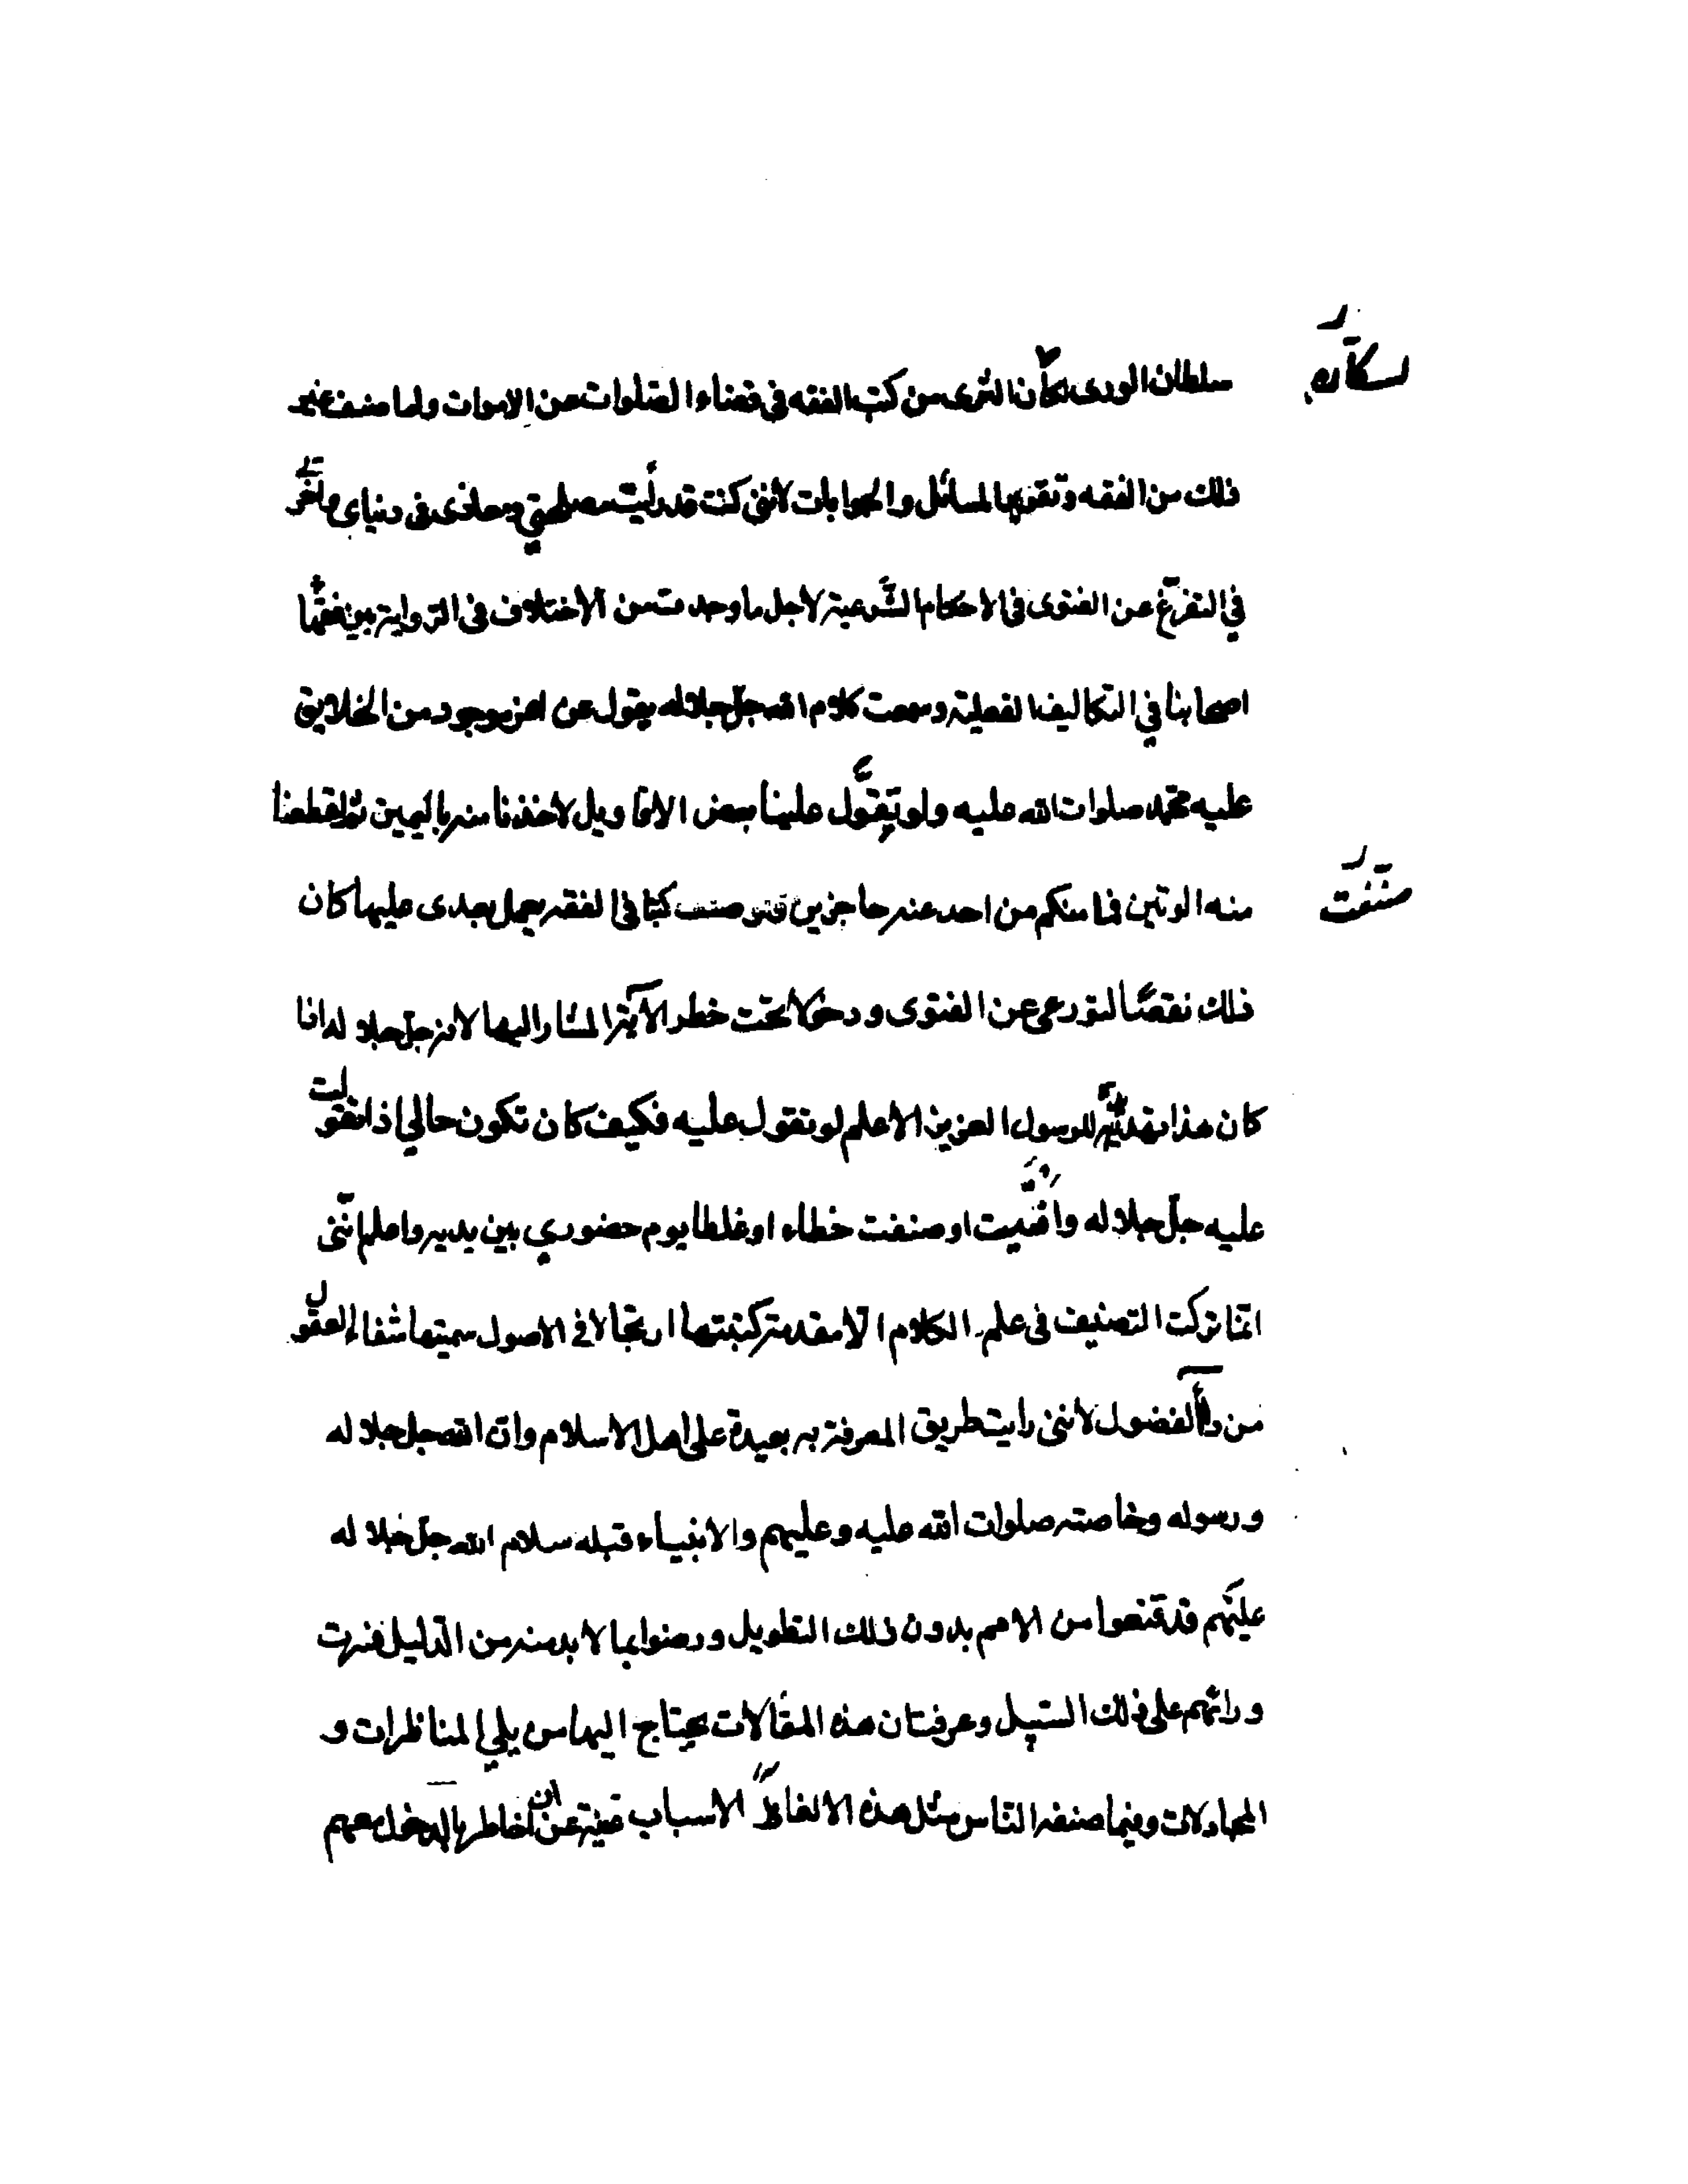 سلطان الورى لسكان الثرى من كتب الفقه في قضاء الصلوات عن الاموات ولما صنف غير
ذلك من الفقه وتقريب المسائل والجوابات لانني كنت قد رأيت مصلحتي ومعاذى في دنياى وآخرتي
في التفرّغ عن الفتوى في الاحكام الشّرعية لاجل ما وجدت من الاختلاف في الرواية بين فقهاء
اصحابنا في التكاليف الفعلية وسمعت كلام الله جلّ جلاله يقول عن اعز موجود من الخلايق
عليه محمّد صلوات الله عليه ولو تقوّل علينا بعض الاقاويل لاخذنا منه باليمين ثم لقطعنا
منه الوتين فما منكم من احد عنه حاجزين فلو صنفت كتبا في الفقه يعمل بعدى عليها كان
ذلك نقضًا لتورعى عن الفتوى ودخولا تحت خطر الآية المشار اليها لانه جلّ جلاله اذا
كان هذا تهديده للرسول العزيز الاعلم لو تقول عليه فكيف كان تكون حالي اذا تقولت
عليه جلّ جلاله وافتيت او صنفت خطاء او غلطا يوم حضوري بين يديه واعلم انّني
انّما تركت التصنيف في علم الكلام الّا مقدمة كتبتها ارتجالا في الاصول سميتها شفاء العقول
من داء الفضول لانني رايت طريق المعرفة به بعيدة على اهل الاسلام وانّ الله جل جلاله
ورسوله وخاصته صلوات الله عليه وعليهم والانبياء قبله سلام الله جلّ جلاله
عليهم قد قنعوا من الامم بدون ذلك التطويل ورضوا بما لا بد منه من الدّليل فسرت
ورائهم على ذلك السّبيل وعرفت ان هذه المقالات يحتاج اليها من يلي المناظرات و
المجادلات وفيما صنفه النّاس مثل هذه الالفاظ الاسباب غنية عن ان اخاطر بالدخول معهم
لسكان
صنّفت